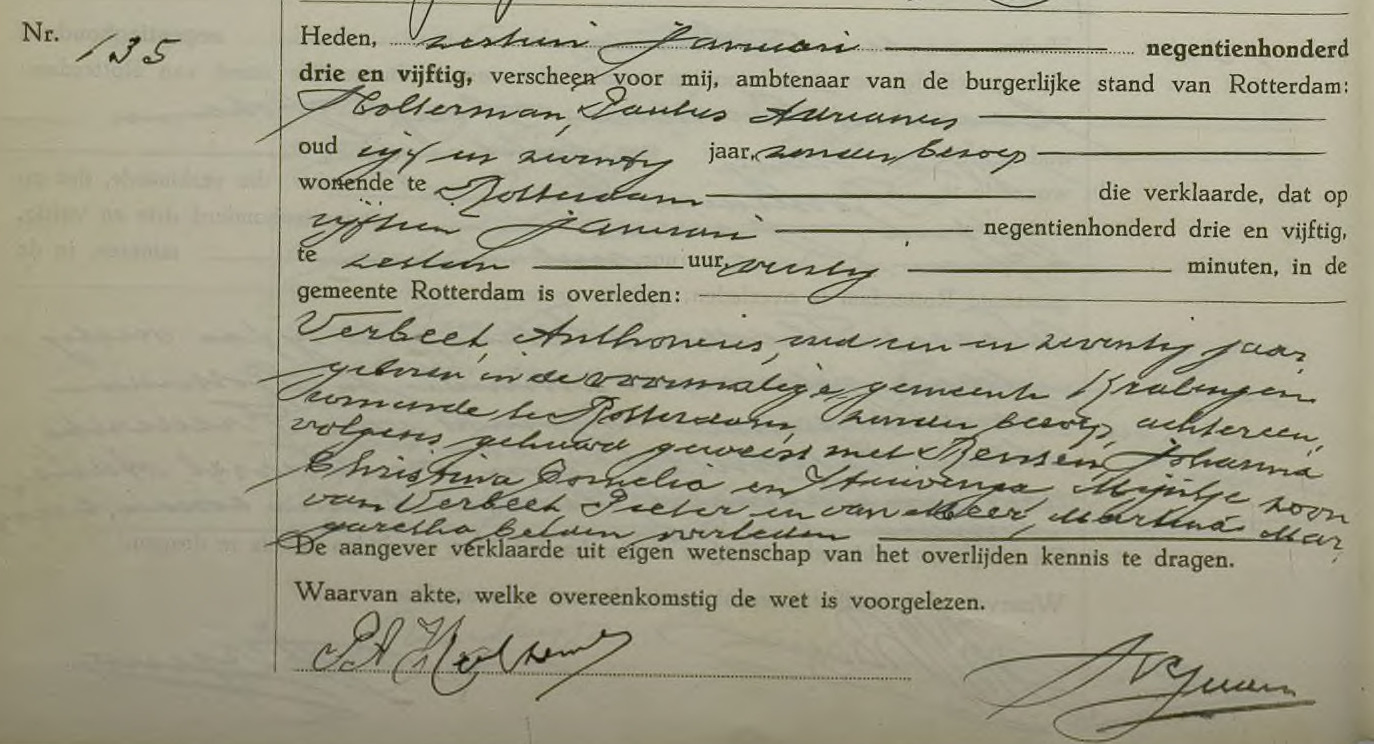 Nr. 135
Heden, zestien Januari negentienhonderd
drie en vijftig, verscheen voor mij, ambtenaar van de burgerlijke stand van Rotterdam:
Holterman, Paulus Adrianus
oud vijf en zeventig jaar, zonder beroep
wonende te Rotterdam die verklaarde, dat op
vijftien Januari negentienhonderd drie en vijftig,
te zestien uur, veertig minuten, in de
gemeente Rotterdam is overleden:
Verbeek, Anthonius, oud een en zeventig jaar,
geboren in de voormalige gemeente Kralingen
wonende te Rotterdam, zonder beroep, achtereen,
volgens gehuwd geweest met Rensen, Johanna
Christina Cornelia en Stuivenga, Mijntje zoon
van Verbeek Pieter en van Meer, Martina Mar,
garetha beiden overleden
De aangever verklaarde uit eigen wetenschap van het overlijden kennis te dragen.
Waarvan akte, welke overeenkomstig de wet is voorgelezen.
PA Holterman